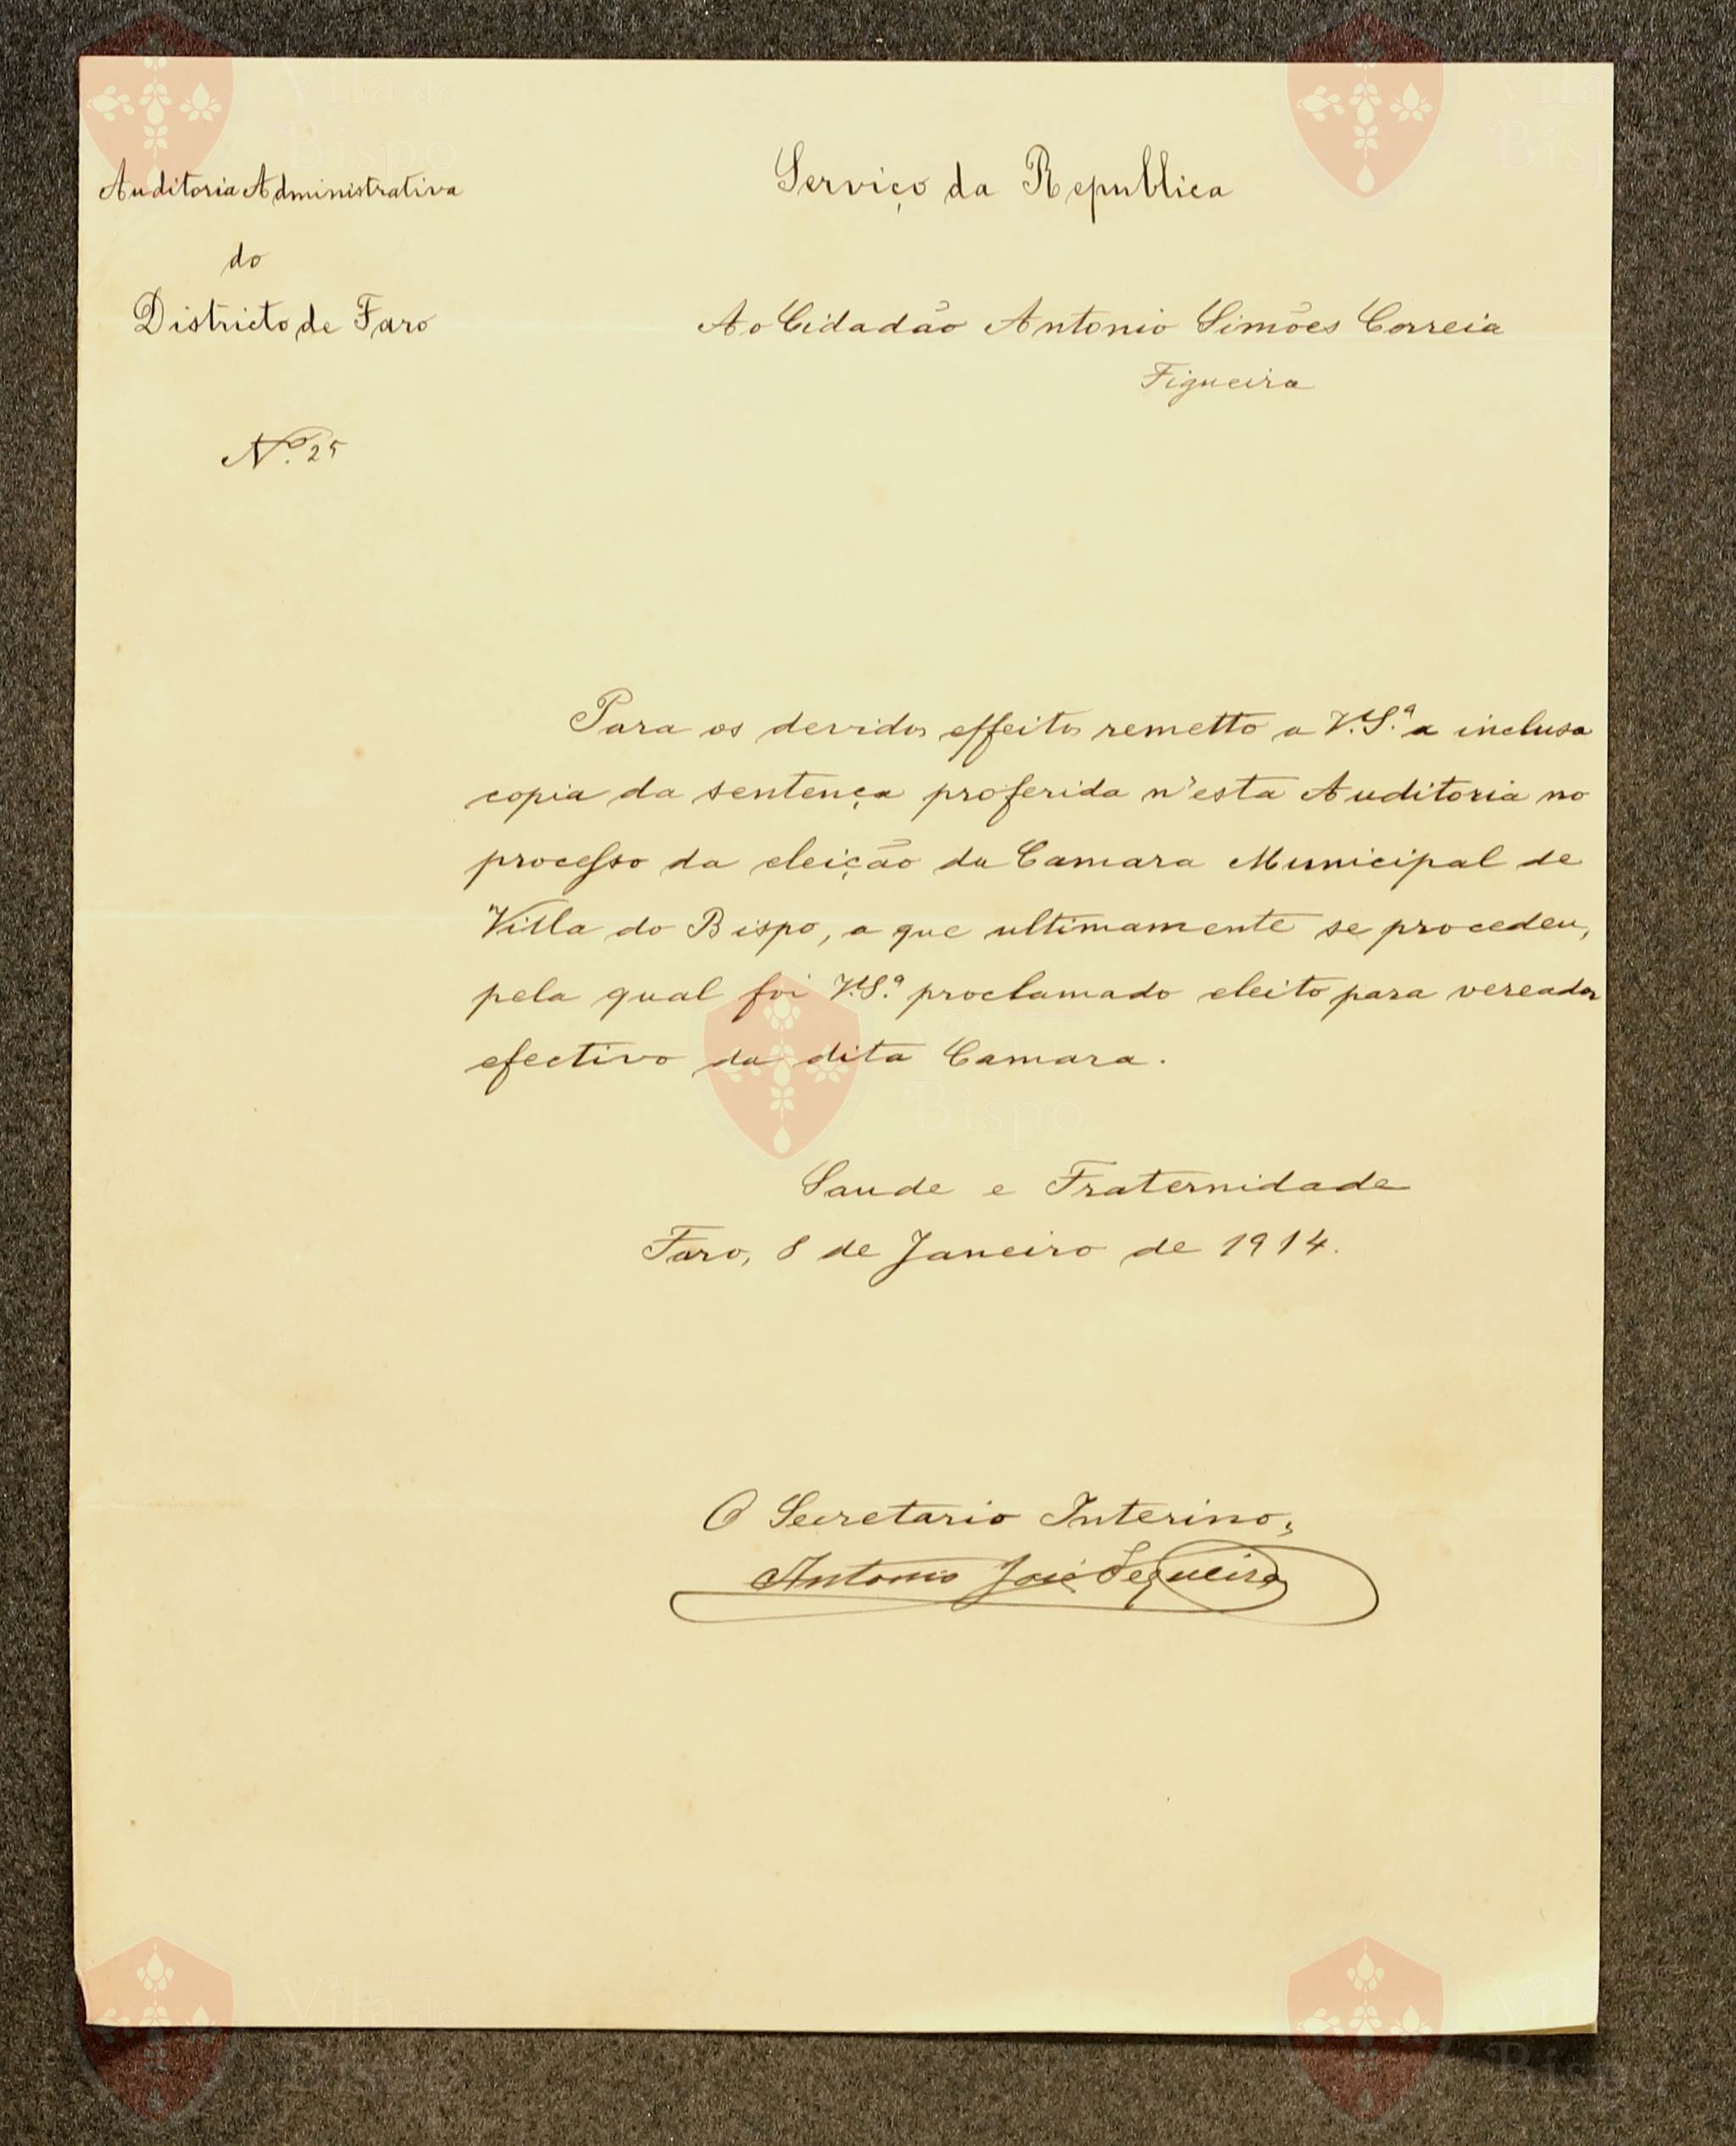 Auditoria Administrativa
do
Districto de Faro
Nº. 25
Serviço da Republica
Ao Cidadão Antonio Simões Correia
Figueira
Para os devidos effeitos remetto a V.S.ª a inclusa
copia da sentença proferida n'esta Auditoria no
processo da eleição da Camara Municipal de
Villa do Bispo, a que ultimamente se procedeu,
pela qual foi V.S.ª proclamado eleito para vereador
efectivo da dita Camara.
Saude e Fraternidade
Faro, 8 de Janeiro de 1914.
O Secretario Interino,
Antonio José Sequeira
Vila do
Bispo
Vila
Bisp
Bispo
Vila do
Bispo
Bispo